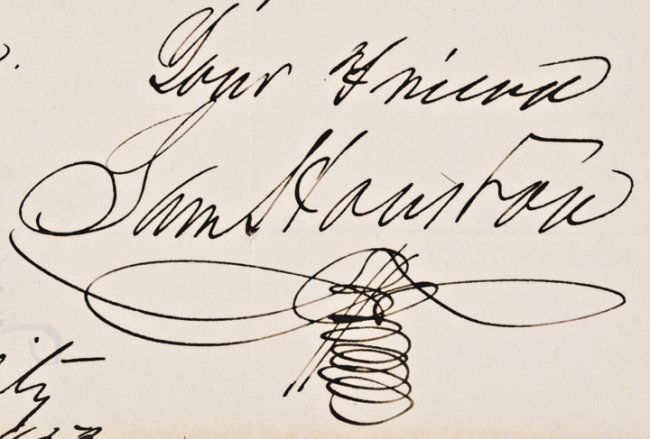 Your Friend
Sam Houston